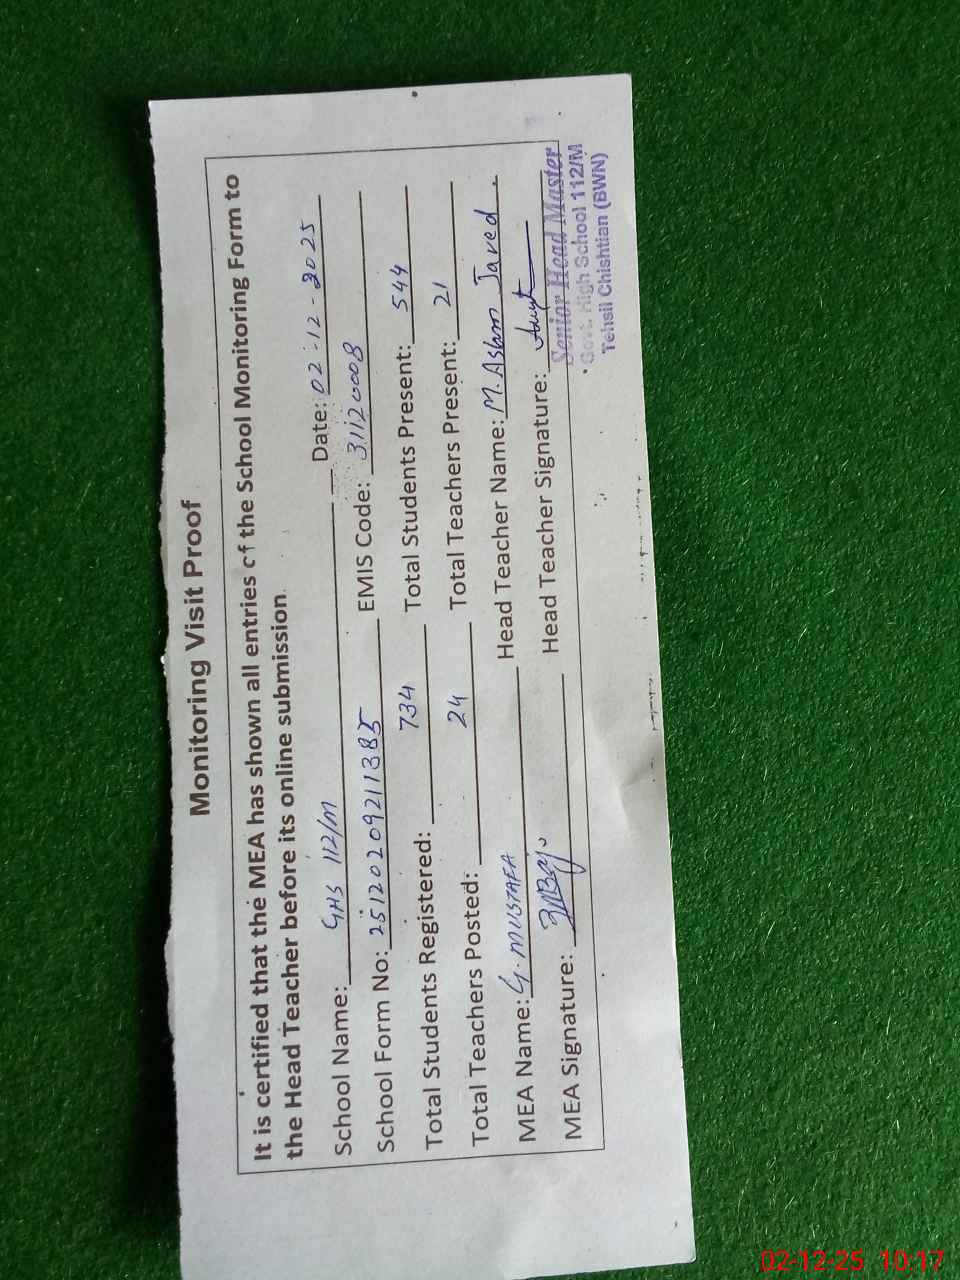 Monitoring Visit Proof
It is certified that the MEA has shown all entries of the School Monitoring Form to
the Head Teacher before its online submission.
School Name: GHS 112/M Date: 02-12-2025
School Form No: 251202092113B5 EMIS Code: 31120008
Total Students Registered: 734 Total Students Present: 544
Total Teachers Posted: 24 Total Teachers Present: 21
MEA Name: G. MUSTAFA Head Teacher Name: M. Aslam Javed.
MEA Signature: Head Teacher Signature:
Senior Head Master
Govt. High School 112/M
Tehsil Chishtian (BWN)
02-12-25 10:17